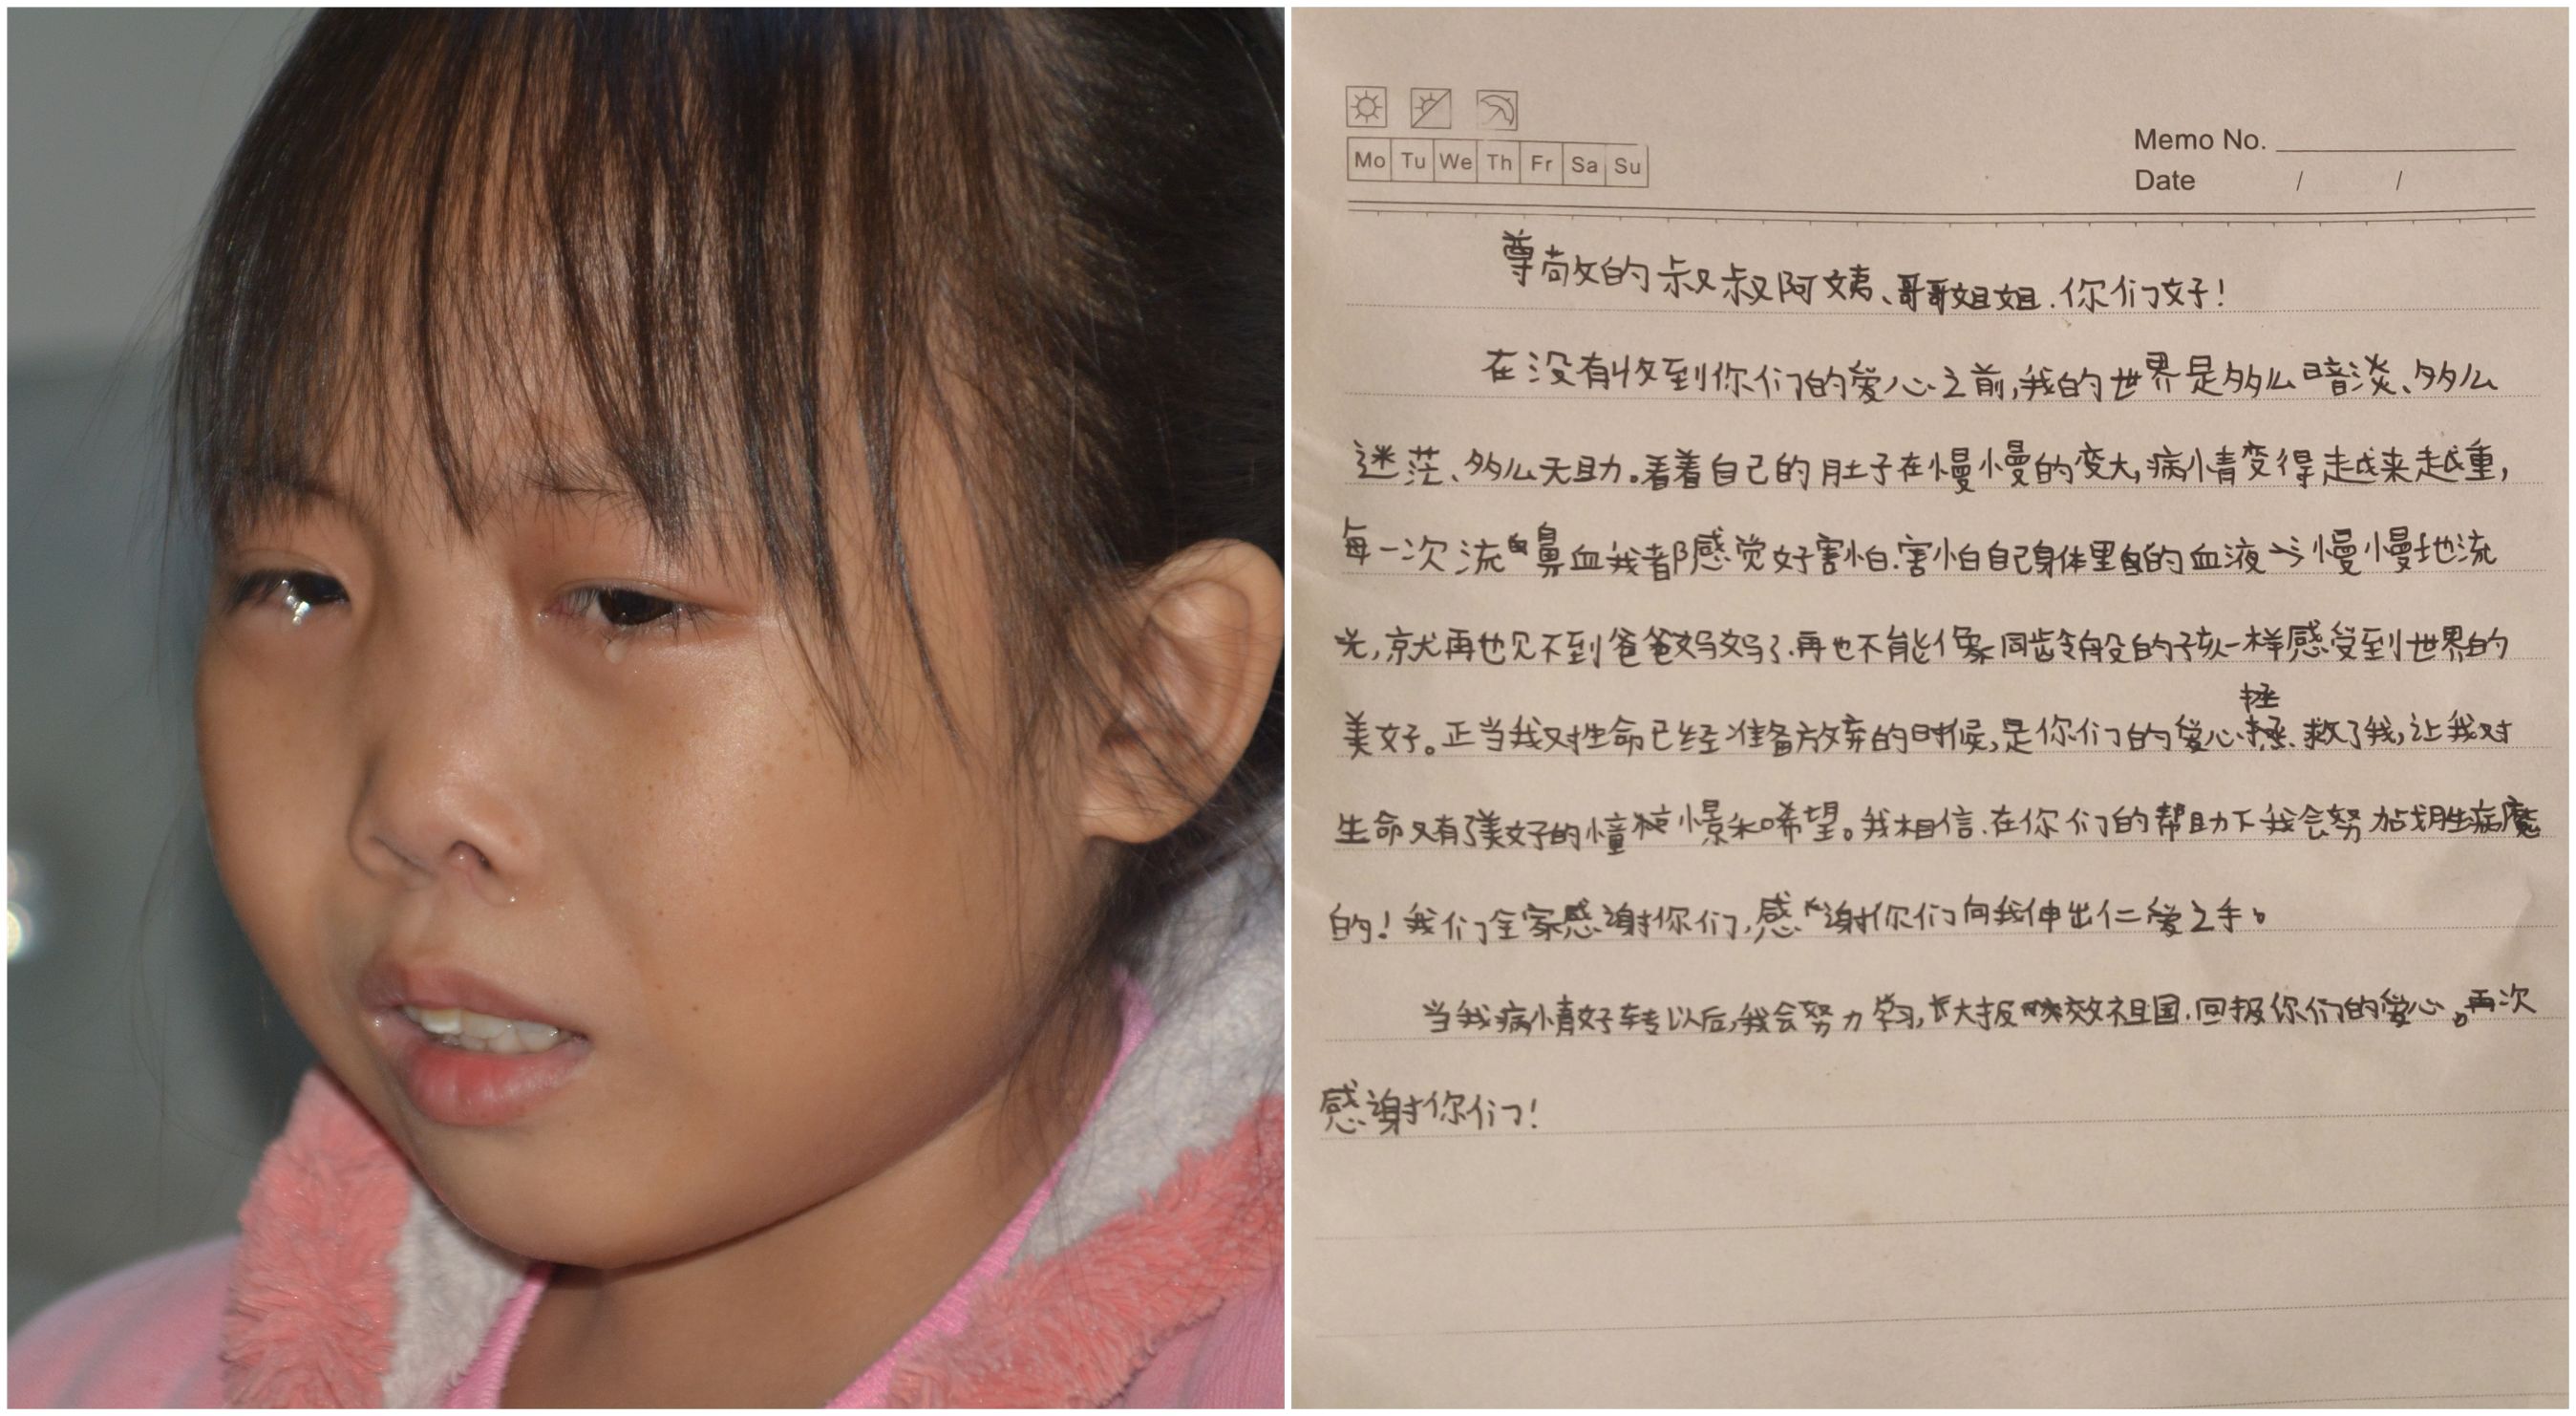 Mo Tu We Th Fr Sa Su
Memo No.
Date / /
尊敬的叔叔阿姨、哥哥姐姐.你们好!
在没有收到你们的爱心之前,我的世界是多么暗淡、多么
迷茫、多么无助。看着自己的肚子在慢慢的变大,病情变得越来越重,
每一次流鼻血我都感觉好害怕.害怕自己身体里的血液会慢慢地流
光,就再也见不到爸爸妈妈了.再也不能像同龄般的孩一样感受到世界的
美好。正当我对生命已经准备放弃的时候,是你们的爱心拯救了我,让我对
生命又有了美好的憧憬和希望。我相信.在你们的帮助下我会努力战胜病魔
的!我们全家感谢你们,感谢你们向我伸出仁爱之手。
当我病情好转以后,我会努力学习,长大报效祖国.回报你们的爱心。再次
感谢你们!